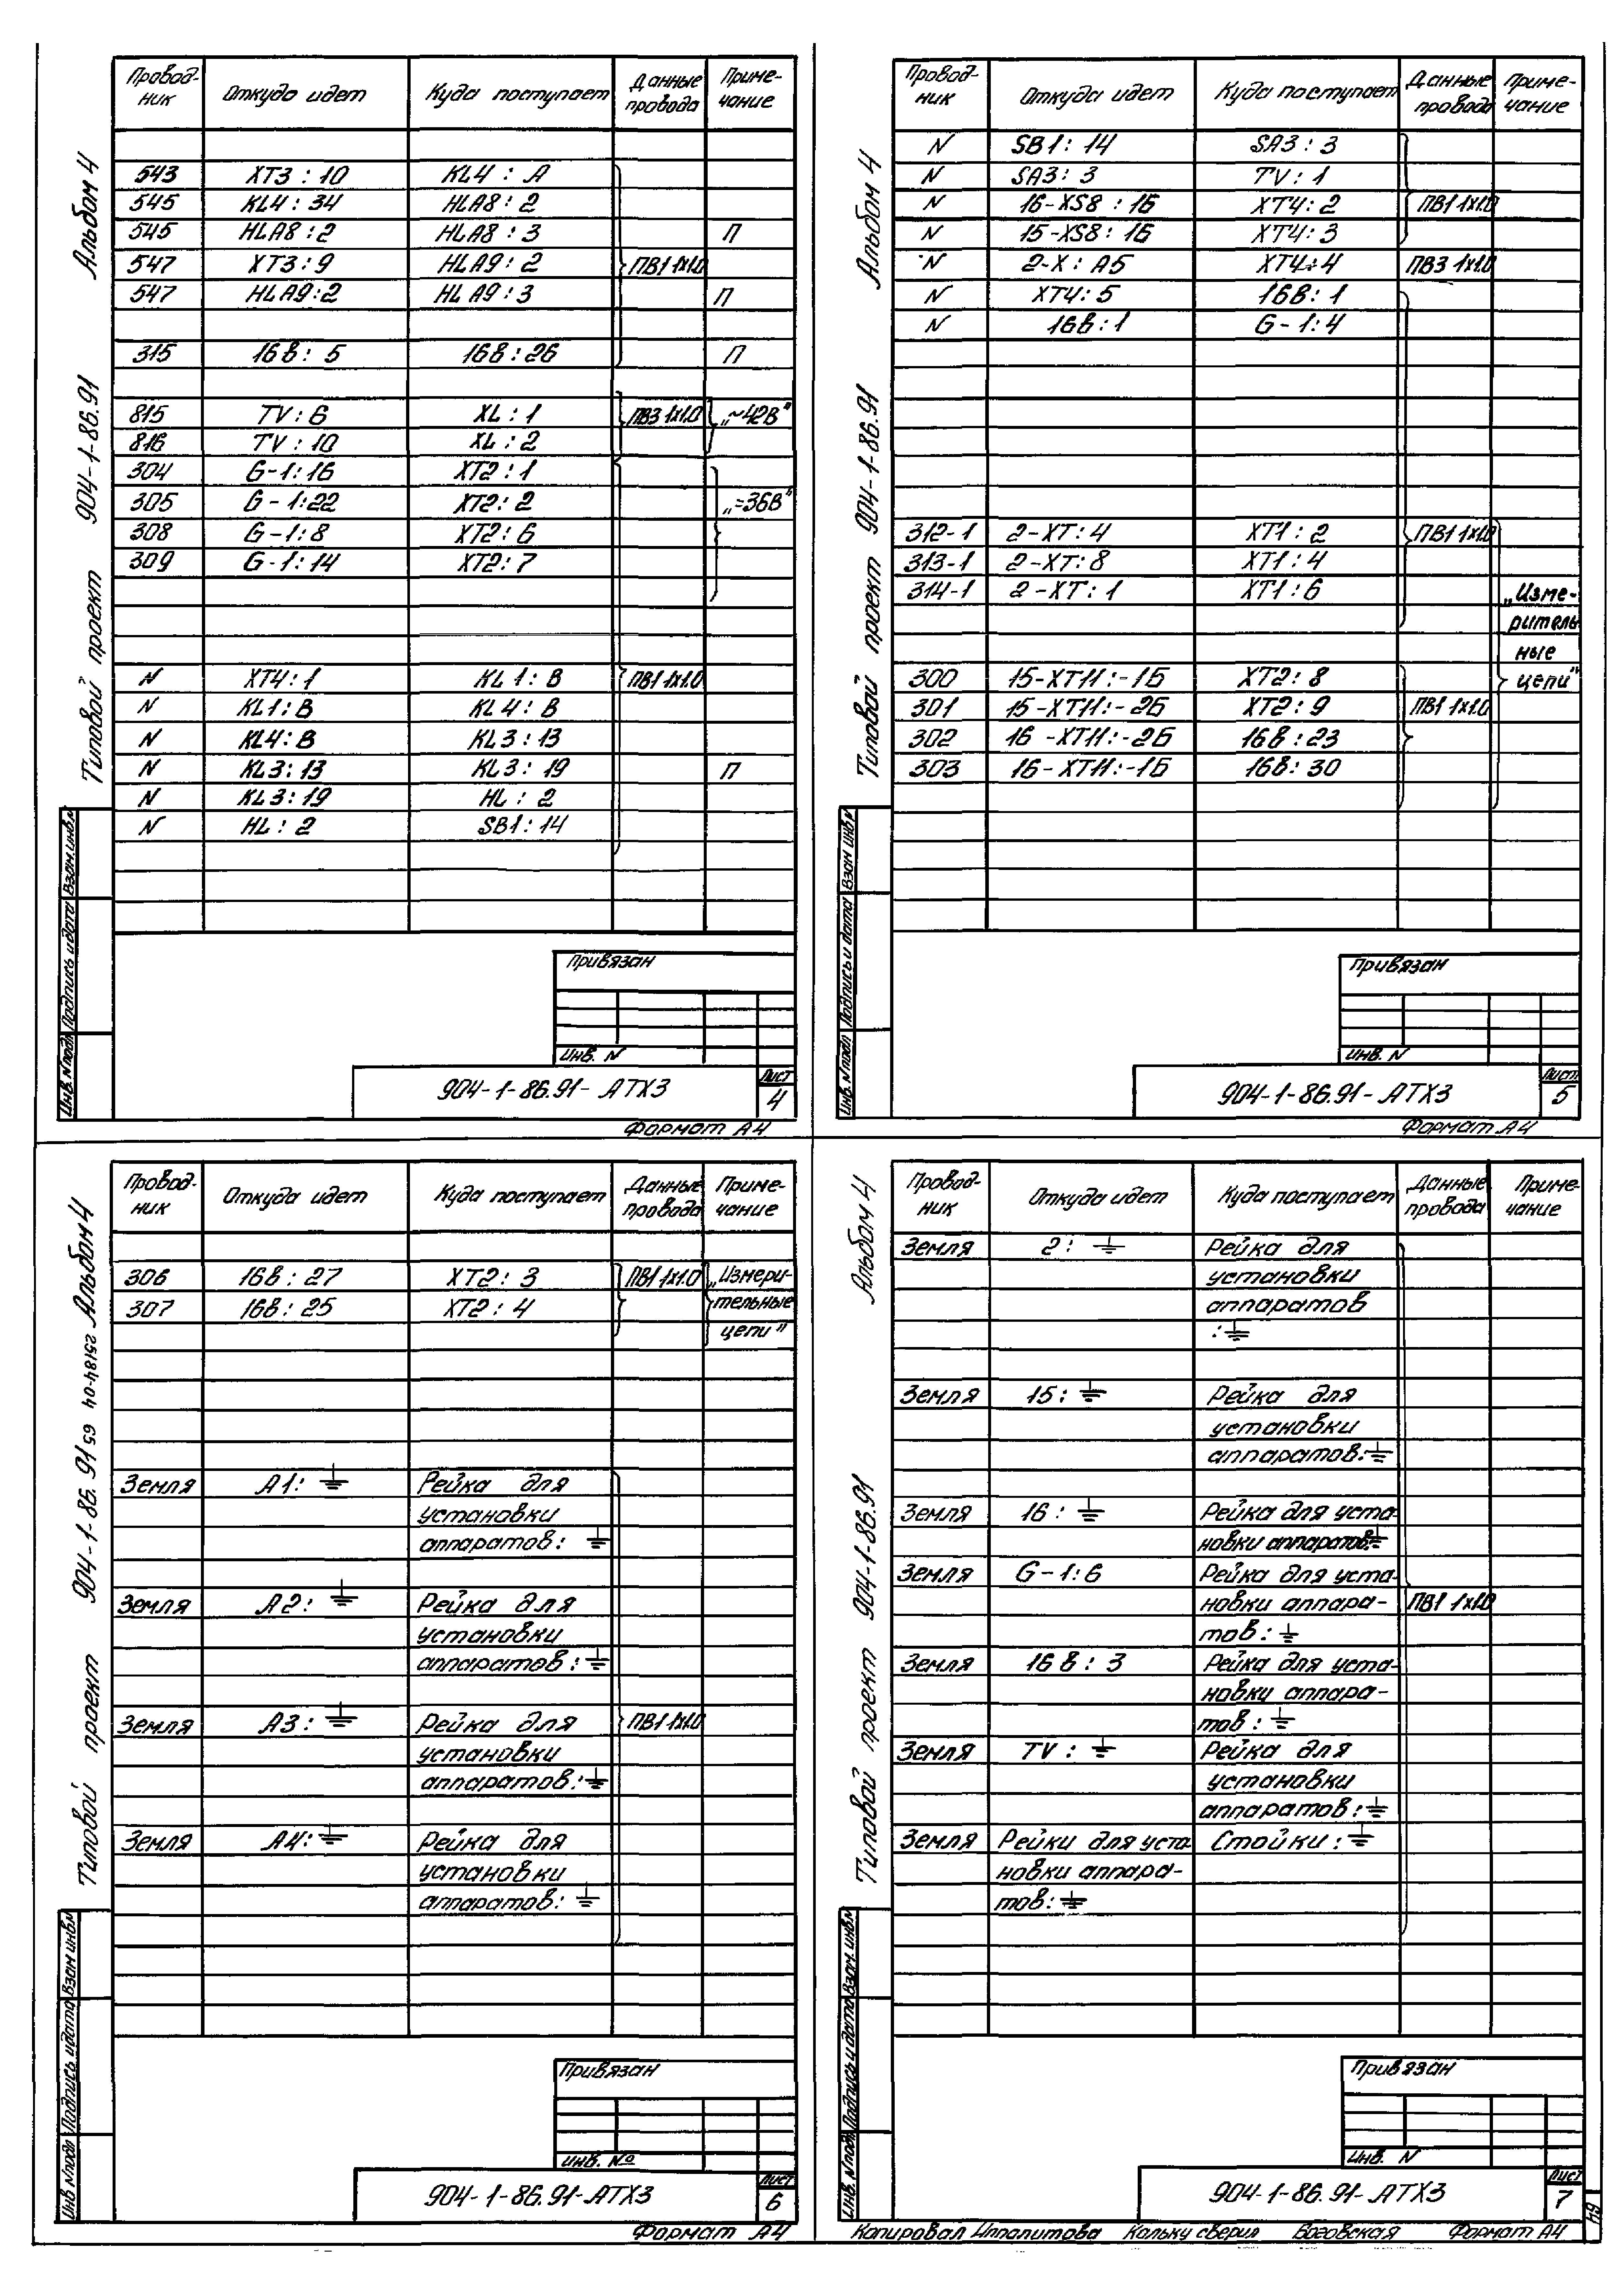 Альбом 4
904-1-86.91
Типовой проект
Провод- Откуда идет Куда поступает Данные Приме-
ник провода чание
543 XT3 : 10 KL4 : A
545 KL4 : 34 HLA8 : 2
545 HLA8 : 2 HLA8 : 3 П
547 XT3 : 9 HLA9 : 2 ПВ1 1х1.0
547 HLA9 : 2 HLA9 : 3 П
315 16в : 5 16в : 26 П
815 TV : 6 XL : 1 ПВ3 1х1.0 „~42В"
816 TV : 10 XL : 2
304 G-1:16 XT2 : 1
305 G-1:22 XT2 : 2 „=36В"
308 G-1:8 XT2 : 6
309 G-1:14 XT2 : 7
N XT4 : 1 KL1 : B ПВ1 1х1.0
N KL1 : B KL4 : B
N KL4 : B KL3 : 13
N KL3 : 13 KL3 : 19 П
N KL3 : 19 HL : 2
N HL : 2 SB1 : 14
Взам.инв.N
Подпись и дата
Инв. N подл
Привязан
Инв. N
904-1-86.91-АТХ3
Лист
4
Формат А4
Альбом 4
904-1-86.91
Типовой проект
Провод- Откуда идет Куда поступает Данные Приме-
ник провода чание
N SB1 : 14 SA3 : 3
N SA3 : 3 TV : 1
N 16-XS8 : 1Б XT4 : 2 ПВ1 1х1.0
N 15-XS8 : 1Б XT4 : 3
N 2-X : A5 XT4 : 4 ПВ3 1х1.0
N XT4 : 5 16в : 1
N 16в : 1 G-1:4
312-1 2-XT : 4 XT1 : 2 ПВ1 1х1.0
313-1 2-XT : 8 XT1 : 4
314-1 2-XT : 1 XT1 : 6 „Изме-
ритель
ные
300 15-XT11:-1Б XT2 : 8 цепи"
301 15-XT11:-2Б XT2 : 9 ПВ1 1х1.0
302 16-XT11:-2Б 16в : 23
303 16-XT11:-1Б 16в : 30
Взам инв N
Подпись и дата
Инв. N подл
Привязан
Инв. N
904-1-86.91-АТХ3
Лист
5
Формат А4
Альбом 4
25184-04 65
904-1-86.91
Типовой проект
Провод- Откуда идет Куда поступает Данные Приме-
ник провода чание
306 16в : 27 XT2 : 3 ПВ1 1х1.0 „Измери-
307 16в : 25 XT2 : 4 тельные
цепи"
Земля А1: ⏚ Рейка для
установки
аппаратов: ⏚
Земля А2: ⏚ Рейка для
установки
аппаратов: ⏚
Земля А3: ⏚ Рейка для ПВ1 1х1.0
установки
аппаратов: ⏚
Земля А4: ⏚ Рейка для
установки
аппаратов: ⏚
Взам инв.N
Подпись и дата
Инв N подл
Привязан
Инв. №
904-1-86.91-АТХ3
Лист
6
Формат А4
Альбом 4
904-1-86.91
Типовой проект
Провод- Откуда идет Куда поступает Данные Приме-
ник провода чание
Земля 2: ⏚ Рейка для
установки
аппаратов
: ⏚
Земля 15: ⏚ Рейка для
установки
аппаратов: ⏚
Земля 16: ⏚ Рейка для уста-
новки аппаратов: ⏚
Земля G-1:6 Рейка для уста-
новки аппара- ПВ1 1х1.0
тов: ⏚
Земля 16в : 3 Рейка для уста-
новку аппара-
тов: ⏚
Земля TV : ⏚ Рейка для
установки
аппаратов: ⏚
Земля Рейки для уста Стойки: ⏚
новки аппара-
тов: ⏚
Взам. инв.N
Подпись и дата
Инв. N подл
Привязан
Инв. N
904-1-86.91-АТХ3
Лист
7
64
Копировал Ипполитова Кальку сверил Боговская Формат А4